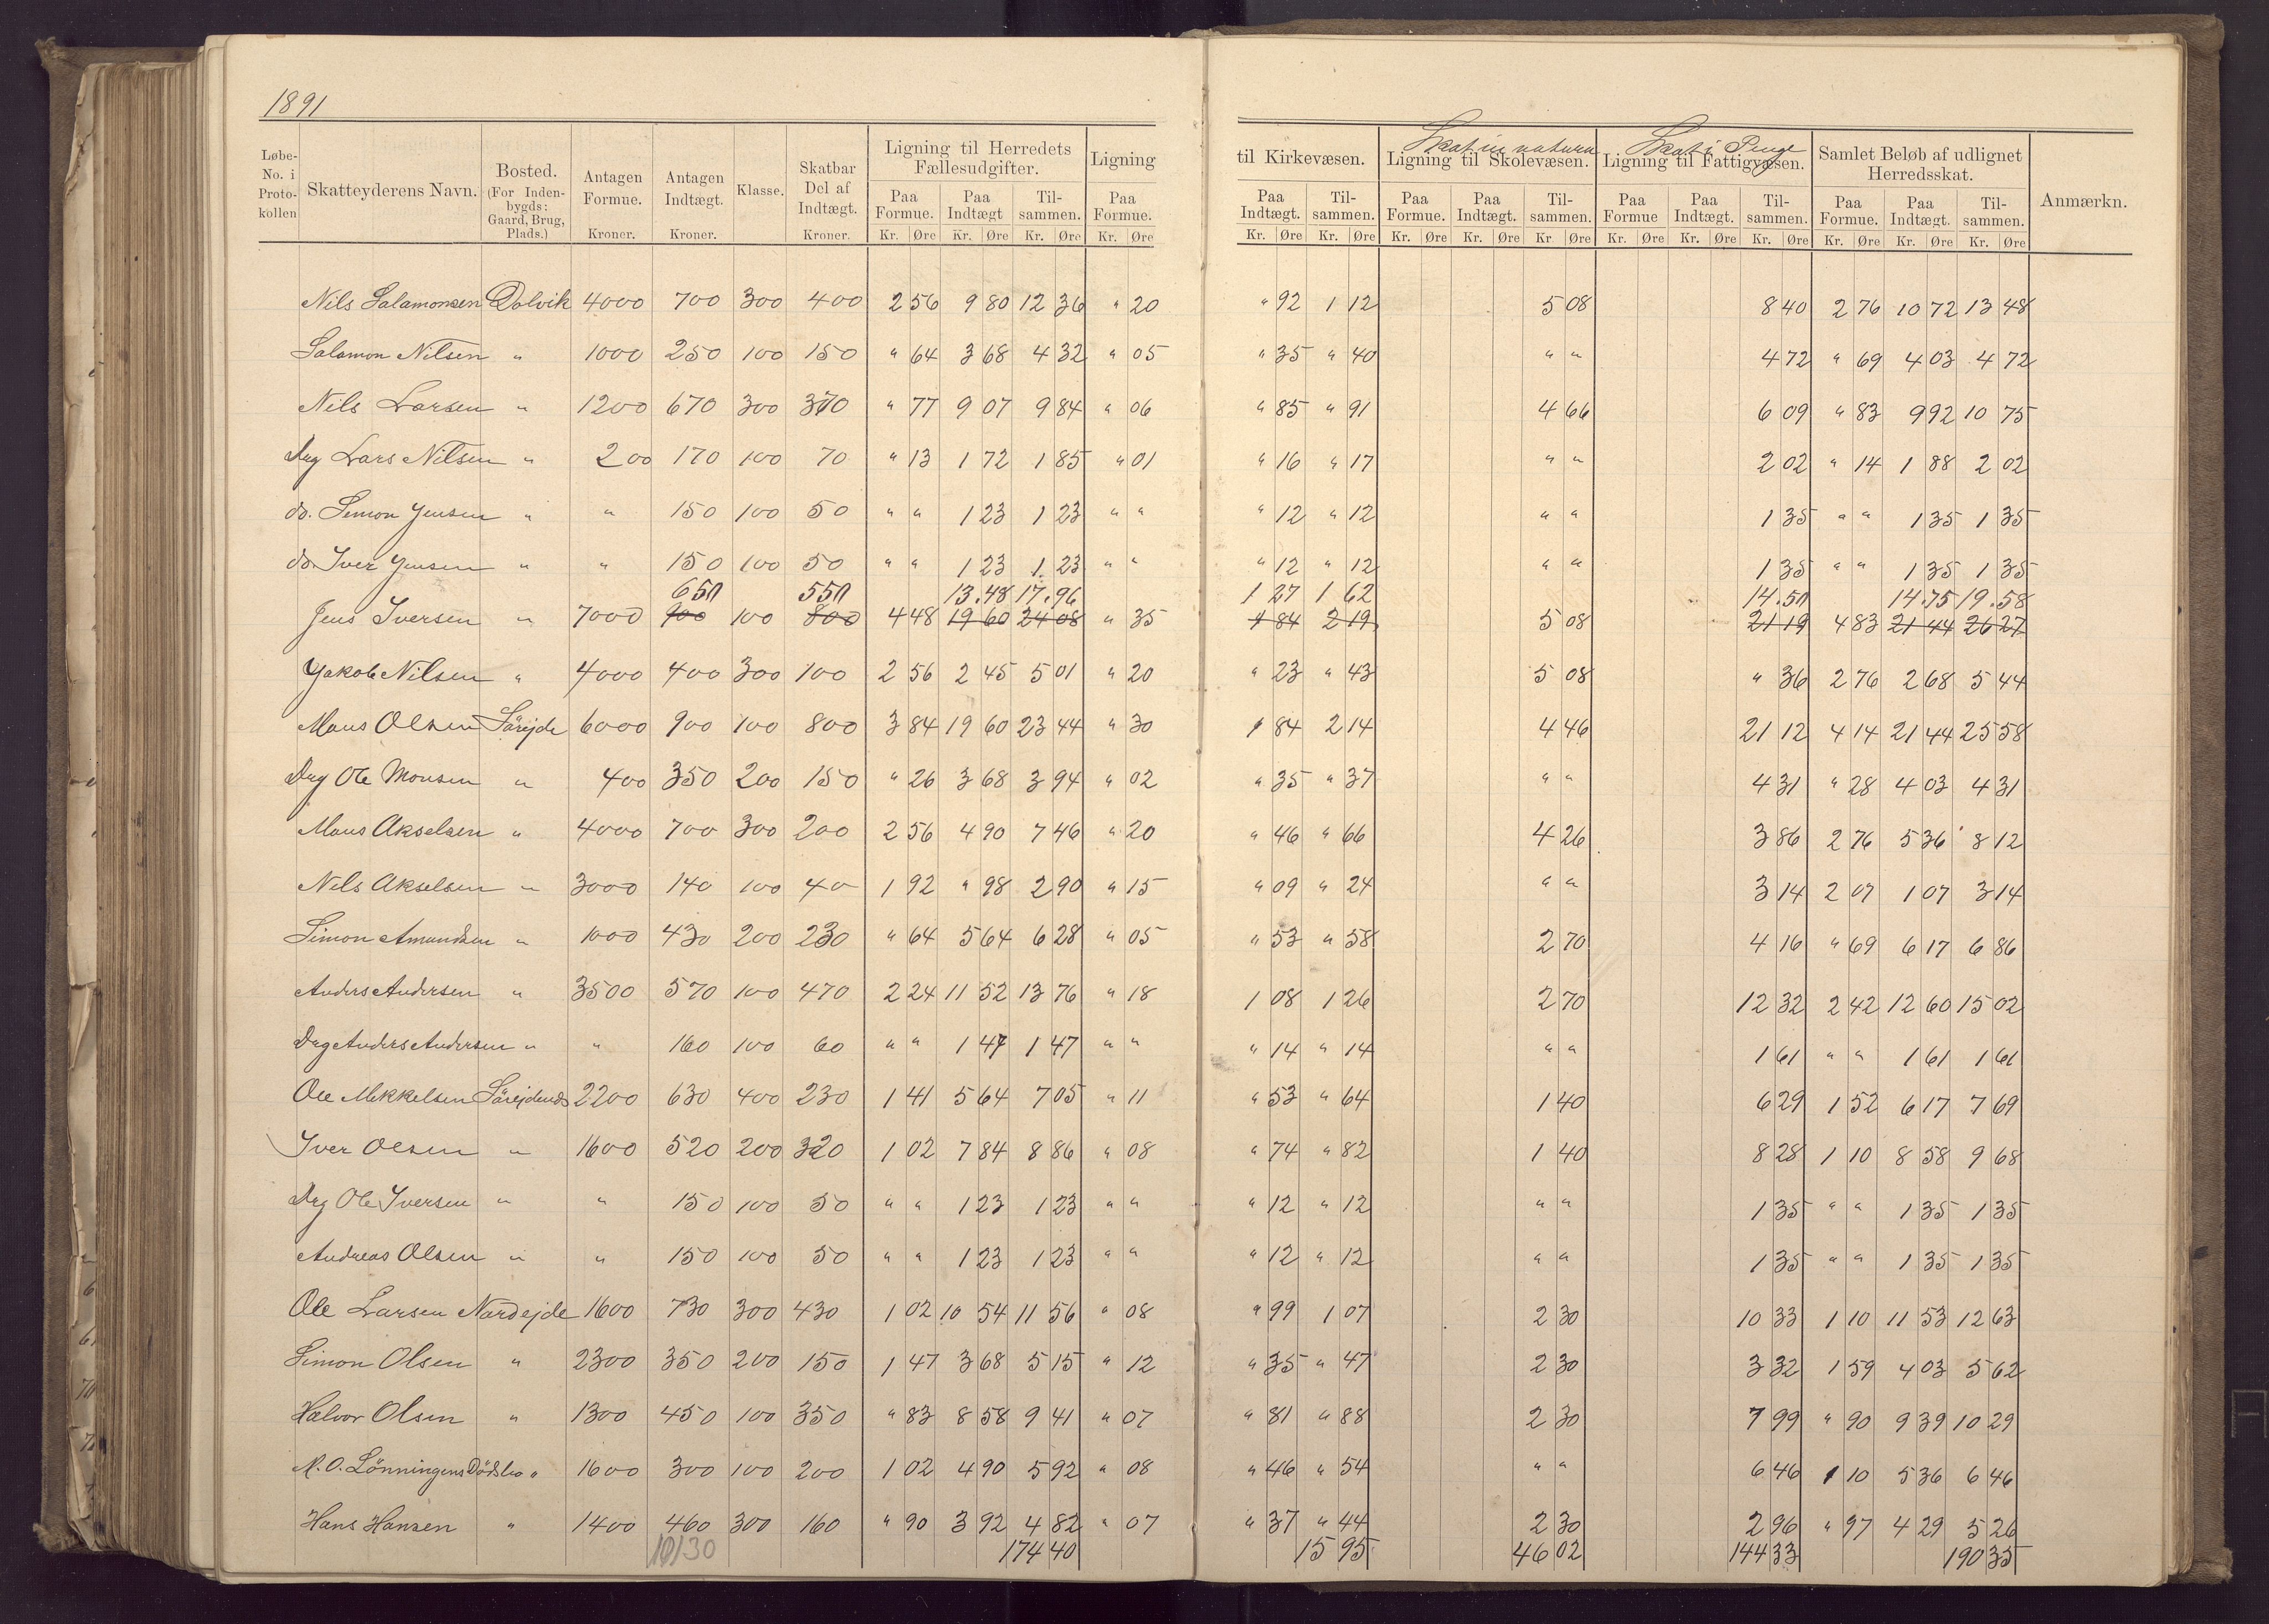 1891
Løbe-No. i Proto-kollen | Skatteyderens Navn. | Bosted. (For Inden-bygds: Gaard, Brug, Plads.) | Antagen Formue. Kroner. | Antagen Indtægt. Kroner. | Klasse. | Skatbar Del af Indtægt. Kroner. | Ligning til Herredets Fællesudgifter. Paa Formue. Kr. Øre Paa Indtægt Kr. Øre Til-sammen. Kr. Øre | Ligning Paa Formue. Kr. Øre | til Kirkevæsen. Paa Indtægt. Kr. Øre Til-sammen. Kr. Øre | Skat in natura Ligning til Skolevæsen. Paa Formue. Kr. Øre Paa Indtægt. Kr. Øre Til-sammen. Kr Øre | Skat i Penge Ligning til Fattigvæsen. Paa Formue Kr. Øre Paa Indtægt. Kr. Øre Til-sammen. Kr. Øre | Samlet Beløb af udlignet Herredsskat. Paa Formue. Kr. Øre Paa Indtægt. Kr. Øre Til-sammen. Kr. Øre | Anmærkn.
Nils Salamonsen Dolvik 4000 700 300 400 2 56 9 80 12 36 " 20 " 92 1 12 5 08 8 40 2 76 10 72 13 48
Salamon Nilsen " 1000 250 100 150 " 64 3 68 4 32 " 05 " 35 " 40 " " 4 72 " 69 4 03 4 72
Nils Larsen " 1200 670 300 370 " 77 9 07 9 84 " 06 " 85 " 91 4 66 6 09 " 83 9 92 10 75
Drg Lars Nilsen " 200 170 100 70 " 13 1 72 1 85 " 01 " 16 " 17 " " 2 02 " 14 1 88 2 02
do. Simon Jensen " " 150 100 50 " " 1 23 1 23 " " " 12 " 12 " " 1 35 " " 1 35 1 35
do. Iver Jensen " " 150 100 50 " " 1 23 1 23 " " " 12 " 12 " " 1 35 " " 1 35 1 35
650 550 13.48 17.96 1 27 1 62 14.50 14.75 19.58
Jens Iversen " 7000 900 100 800 4 48 19 60 24 08 " 35 1 84 2 19 5 08 21 19 4 83 21 44 26 27
Jakob Nilsen " 4000 400 300 100 2 56 2 45 5 01 " 20 " 23 " 43 5 08 " 36 2 76 2 68 5 44
Mons Olsen Sörejde 6000 900 100 800 3 84 19 60 23 44 " 30 1 84 2 14 4 46 21 12 4 14 21 44 25 58
Drg Ole Monsen " 400 350 200 150 " 26 3 68 3 94 " 02 " 35 " 37 " " 4 31 " 28 4 03 4 31
Mons Akselsen " 4000 700 300 200 2 56 4 90 7 46 " 20 " 46 " 66 4 26 3 86 2 76 5 36 8 12
Nels Akselsen " 3000 140 100 40 1 92 " 98 2 90 " 15 " 09 " 24 " " 3 14 2 07 1 07 3 14
Simon Amundsen " 1000 430 200 230 " 64 5 64 6 28 " 05 " 53 " 58 2 70 4 16 " 69 6 17 6 86
Anders Andersen " 3500 570 100 470 2 24 11 52 13 76 " 18 1 08 1 26 2 70 12 32 2 42 12 60 15 02
Drg Anders Andersen " " 160 100 60 " " 1 47 1 47 " " " 14 " 14 " " 1 61 " " 1 61 1 61
Ole Mikkelsen Sörejdends 2200 630 400 230 1 41 5 64 7 05 " 11 " 53 " 64 1 40 6 29 1 52 6 17 7 69
Iver Olsen " 1600 520 200 320 1 02 7 84 8 86 " 08 " 74 " 82 1 40 8 28 1 10 8 58 9 68
Drg Ole Iversen " " 150 100 50 " " 1 23 1 23 " " " 12 " 12 " " 1 35 " " 1 35 1 35
Andreas Olsen " " 150 100 50 " " 1 23 1 23 " " " 12 " 12 " " 1 35 " " 1 35 1 35
Ole Larsen Nordejde 1600 730 300 430 1 02 10 54 11 56 " 08 " 99 1 07 2 30 10 33 1 10 11 53 12 63
Simon Olsen " 2300 350 200 150 1 47 3 68 5 15 " 12 " 35 " 47 2 30 3 32 1 59 4 03 5 62
Halvor Olsen " 1300 450 100 350 " 83 8 58 9 41 " 07 " 81 " 88 2 30 7 99 " 90 9 39 10 29
M. O. Lönningens Dödsbo " 1600 300 100 200 1 02 4 90 5 92 " 08 " 46 " 54 " " 6 46 1 10 5 36 6 46
Hans Hansen " 1400 460 300 160 " 90 3 92 4 82 " 07 " 37 " 44 2 30 2 96 " 97 4 29 5 26
10130 174 40 15 95 46 02 144 33 190 35